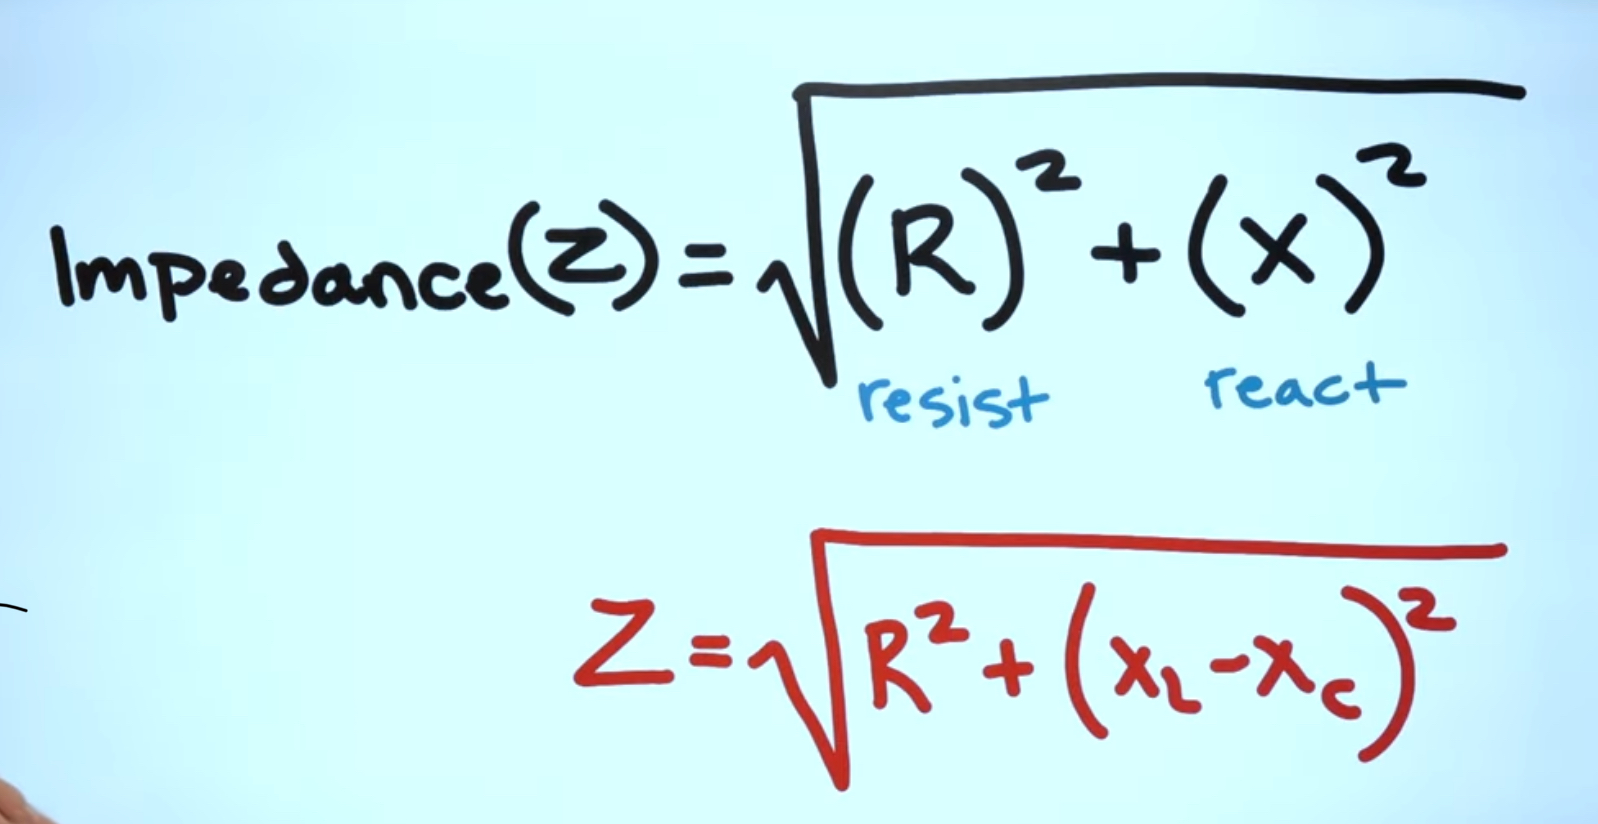 Impedance(Z) = √(R)² + (X)²
resist react
Z = √R² + (X_L - X_C)²